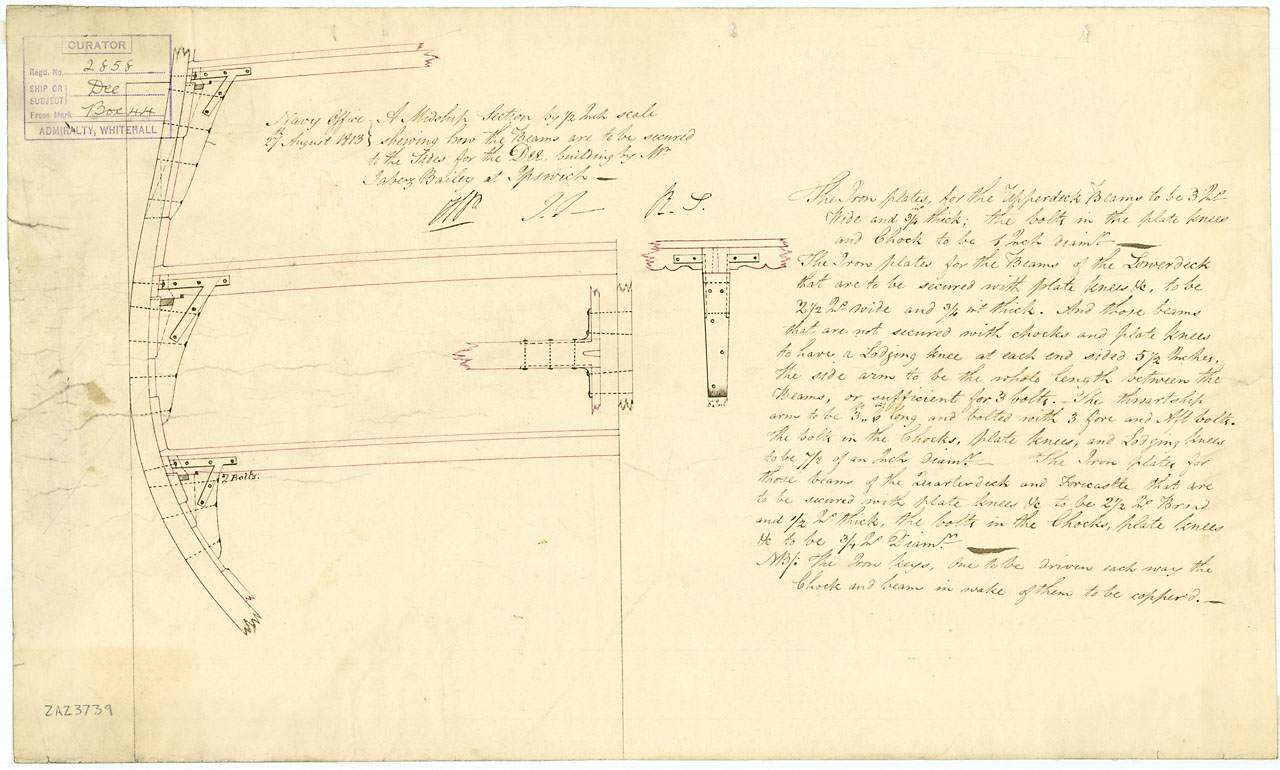 CURATOR
Regd. No. 2858
SHIP OR SUBJECT Dee
Press Mark Box 44
ADMIRALTY, WHITEHALL
Navy Office
27th August 1813
A Midship Section by 1/2 Inch scale
shewing how the Beams are to be secured
to the Sides for the Dee, building by Mr
Jabez Bailey at Ipswich
R. S.
The Iron plates, for the Upperdeck Beams to be 3 Ins
Wide and 3/4 thick; the bolts in the plate knees
and Chock to be 1 Inch diamr
The Iron plates for the Beams of the Lowerdeck
that are to be secured with plate knees &c, to be
2 1/2 Ins wide and 3/4 in thick. And those beams
that are not secured with chocks and plate knees
to have a Lodging knee at each end sided 5 1/2 Inches,
the side arm to be the whole length between the
Beams, or sufficient for 3 bolts. The thwartship
arm to be long and bolted with 3 fore and Aft bolts.
the bolts in the Chocks, plate knees, and Lodging knees
to be 7/8 of an Inch diamr The Iron plates for
those beams of the Quarterdeck and Forecastle that are
to be secured with plate knees &c to be 2 1/2 Ins Broad
and 1/2 In thick, the bolts in the Chocks, plate knees
&c to be 3/4 In Diamr
NB/: The Iron keys, one to be driven each way the
Chock and beam in wake of them to be copper'd.
2 Bolts.
ZAZ3739